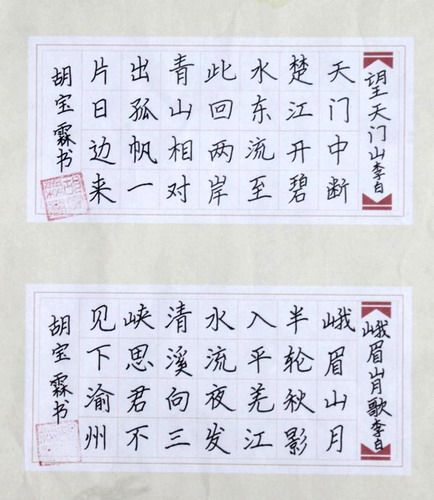 望天门山李白
天门中断
楚江开碧
水东流至
此回两岸
青山相对
出孤帆一
片日边来
胡宝霖书
峨眉山月歌李白
峨眉山月
半轮秋影
入平羌江
水流夜发
清溪向三
峡思君不
见下渝州
胡宝霖书